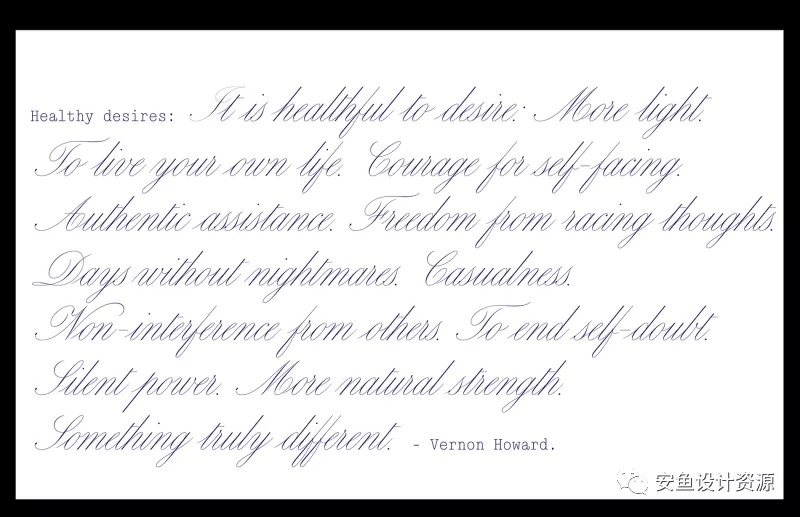 Healthy desires: It is healthful to desire: More light.
To live your own life. Courage for self-facing.
Authentic assistance. Freedom from racing thoughts.
Days without nightmares. Casualness.
Non-interference from others. To end self-doubt.
Silent power. More natural strength.
Something truly different. - Vernon Howard.
安鱼设计资源